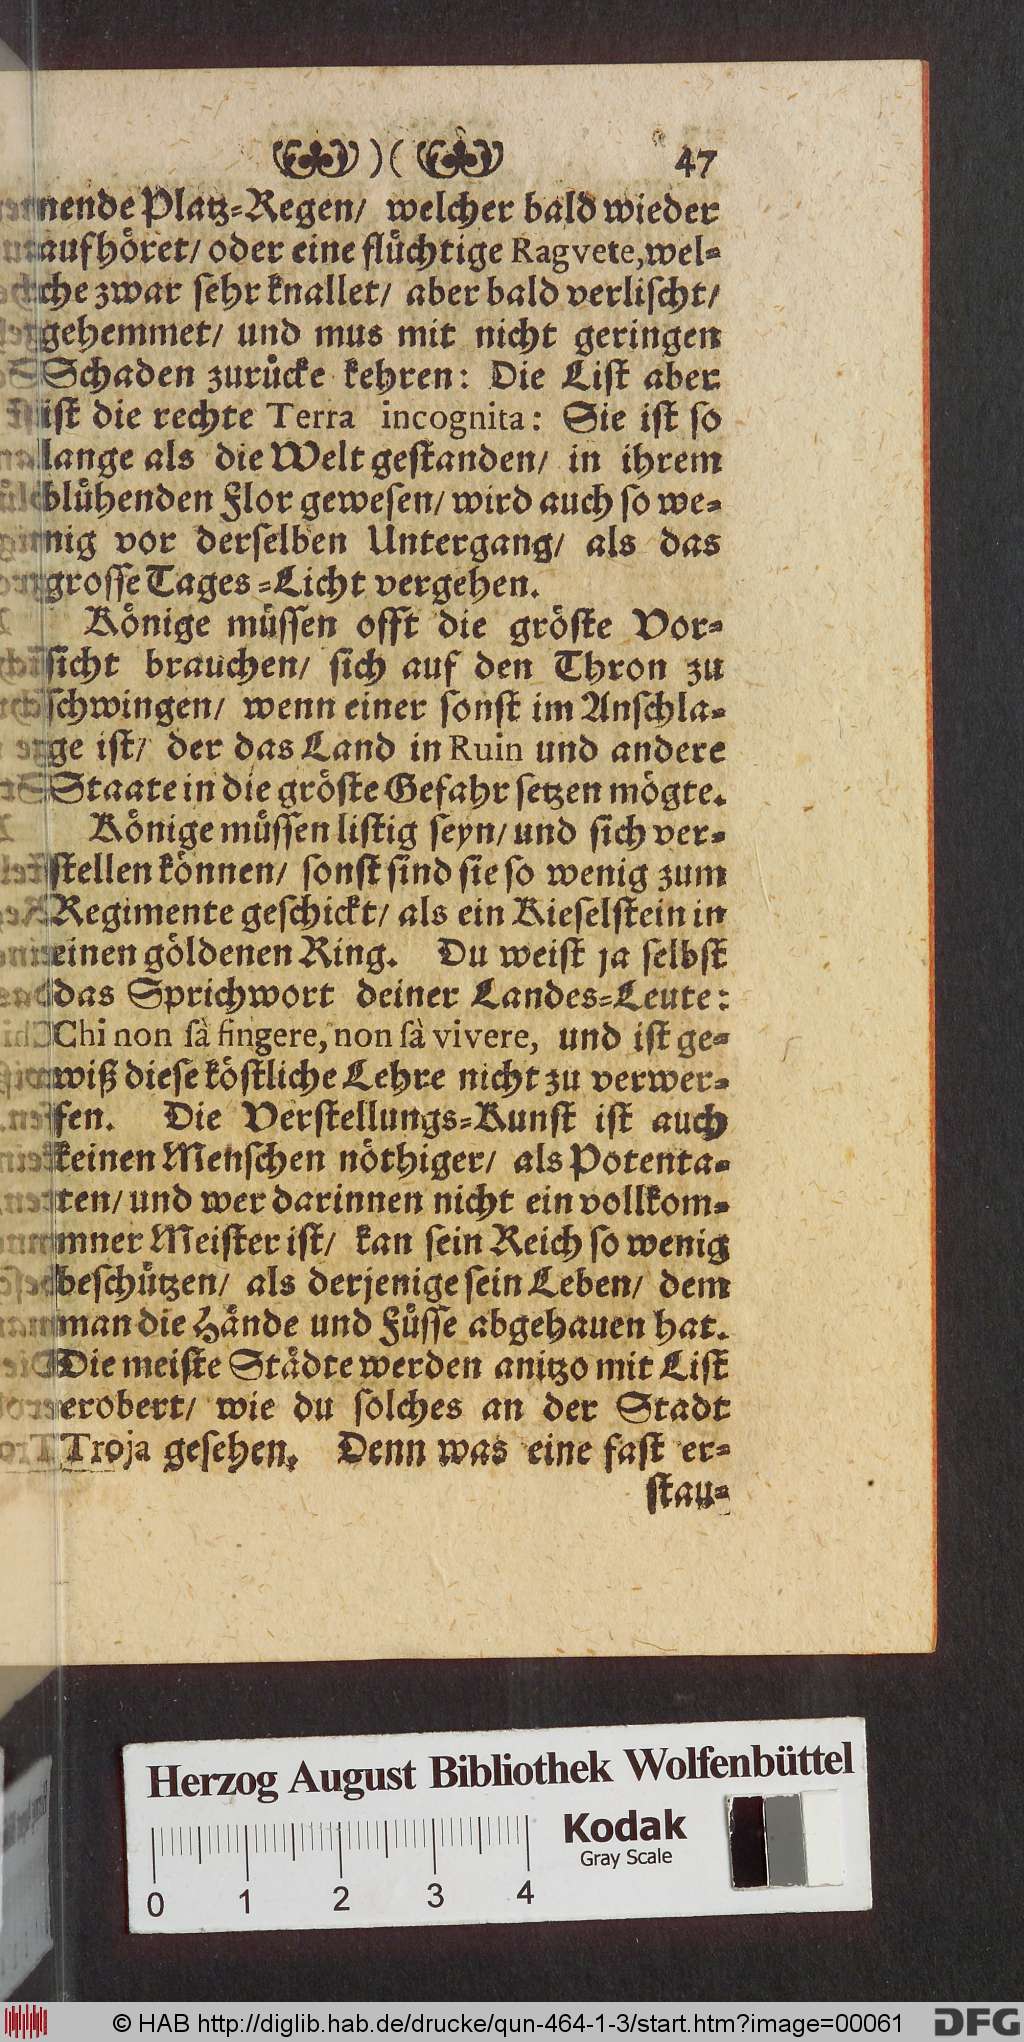 )( 47
nende Platz-Regen/ welcher bald wieder
aufhöret/ oder eine flüchtige Ragvete, wel-
che zwar sehr knallet/ aber bald verlischt/
gehemmet/ und mus mit nicht geringen
Schaden zurücke kehren: Die List aber
ist die rechte Terra incognita: Sie ist so
lange als die Welt gestanden/ in ihrem
blühenden Flor gewesen/ wird auch so we-
nig vor derselben Untergang/ als das
grosse Tages-Licht vergehen.
Könige müssen offt die gröste Vor-
sicht brauchen/ sich auf den Thron zu
schwingen/ wenn einer sonst im Anschla-
ge ist/ der das Land in Ruin und andere
Staate in die gröste Gefahr setzen mögte.
Könige müssen listig seyn/ und sich ver-
stellen können/ sonst sind sie so wenig zum
Regimente geschickt/ als ein Kieselstein in
einen göldenen Ring. Du weist ja selbst
das Sprichwort deiner Landes-Leute:
Chi non sà fingere, non sà vivere, und ist ge-
wiß diese köstliche Lehre nicht zu verwer-
fen. Die Verstellungs-Kunst ist auch
keinen Menschen nöthiger/ als Potenta-
ten/ und wer darinnen nicht ein vollkom-
mner Meister ist/ kan sein Reich so wenig
beschützen/ als derjenige sein Leben/ dem
man die Hände und Füsse abgehauen hat.
Die meiste Städte werden anitzo mit List
erobert/ wie du solches an der Stadt
Troja gesehen. Denn was eine fast er-
stau-
Herzog August Bibliothek Wolfenbüttel
Kodak
Gray Scale
0 1 2 3 4
© HAB http://diglib.hab.de/drucke/qun-464-1-3/start.htm?image=00061
DFG